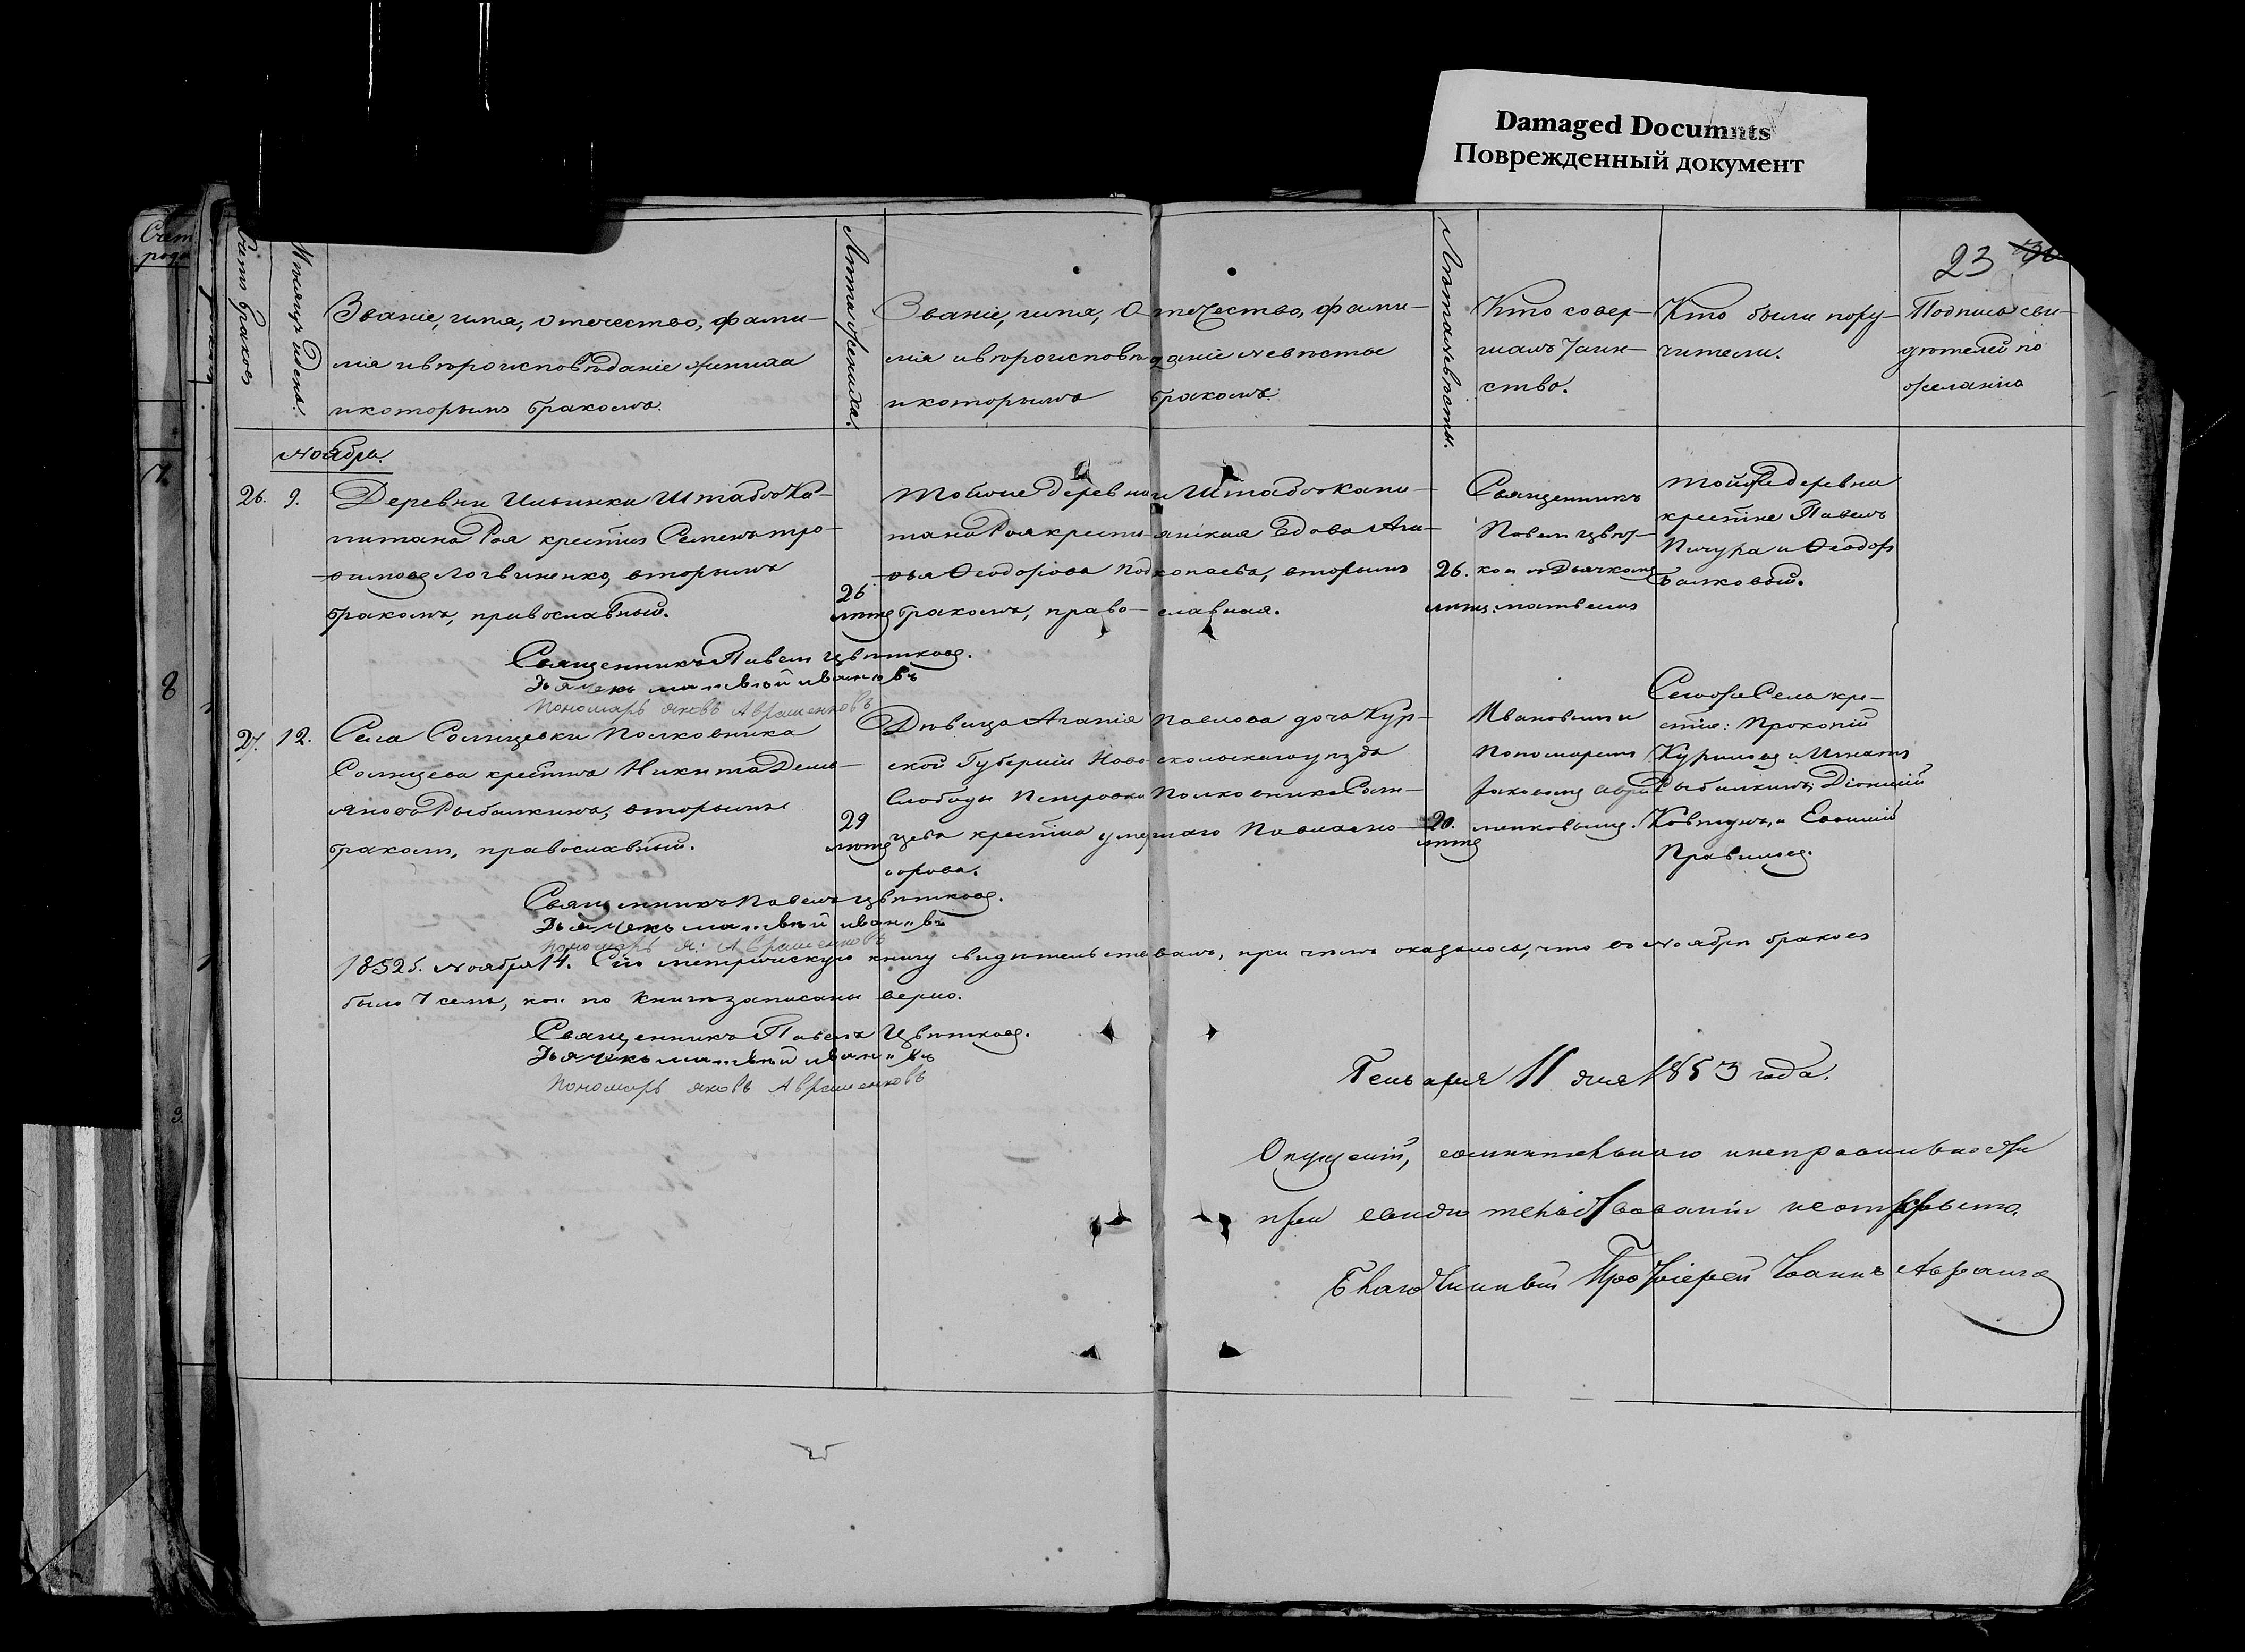 Damaged Documnts
Поврежденный документ
23
Счетъ браковъ
Мѣсяцъ и день.
Званіе, имя, отечество, фами-
лія и вѣроисповѣданіе жениха
и которымъ бракомъ.
Лѣта жениха.
Званіе, имя, отечество, фами-
лія и вѣроисповѣданіе невѣсты
и которымъ бракомъ.
Лѣта невѣсты.
Кто совер-
шалъ таин-
ство.
Кто были пору-
чители.
Подпись сви-
дѣтелей по
желанію
Ноябрь.
26.
9.
Деревни Ильинки Штабсъ Ка-
питана Роя крестьян Семенъ Тро-
фимовъ Логвиненко, вторымъ
бракомъ, православный.
26
лѣтъ
Тойже деревни Штабсъ Капи-
тана Роя крестьянская вдова Ага-
фья Ѳеодорова Подкопаева, вторымъ
бракомъ, православная.
26.
лѣтъ
Священникъ
Павелъ Цвѣт-
ковъ съ Дьячкомъ
Матвѣемъ
Тойже деревни
крестьне Павелъ
Пичура и Ѳеодоръ
Балковый.
Священникъ Павелъ Цвѣтковъ.
Дьячекъ Матвѣй Ивановъ
Пономарь Яковъ Авраменковъ
27.
12.
Села Солнцевки Полковника
Солнцева крестьнъ Никита Демь-
яновъ Рыбалкинъ, вторымъ
бракомъ, православный.
29
лѣтъ
Дѣвица Агапія Павлова дочь Кур-
ской Губерніи Новооскольскаго уѣзда
Слободы Петровки Полковника Солн-
цева крестьна умершаго Павла
20.
лѣтъ
Ивановымъ и
Пономаремъ
Яковомъ Авра-
менковымъ.
Сегоже Села кре-
стьне: Прокопій
Куриловъ и Игнатъ
Рыбалкинъ, Діонисій
Ковтунъ, и Евѳимій
Правиловъ.
Священникъ Павелъ Цвѣтковъ.
Дьячекъ Матвѣй Ивановъ
Пономарь Я: Авраменковъ
1852 г. Ноября 14. Сію метрическую книгу свидѣтельствовалъ, при чемъ оказалось, что въ Ноябрѣ браковъ
было 7 семь, кои по книгѣ записаны верно.
Священникъ Павелъ Цвѣтковъ.
Дьячекъ Матвѣй Ивановъ
Пономарь Яковъ Авраменковъ
Генваря 11 дня 1853 года.
Опущеній, сомнительнаго и неправильности
при свидѣтельствованіи неоткрыто.
Благочинный Протоіерей Іоаннъ
7.
8
9